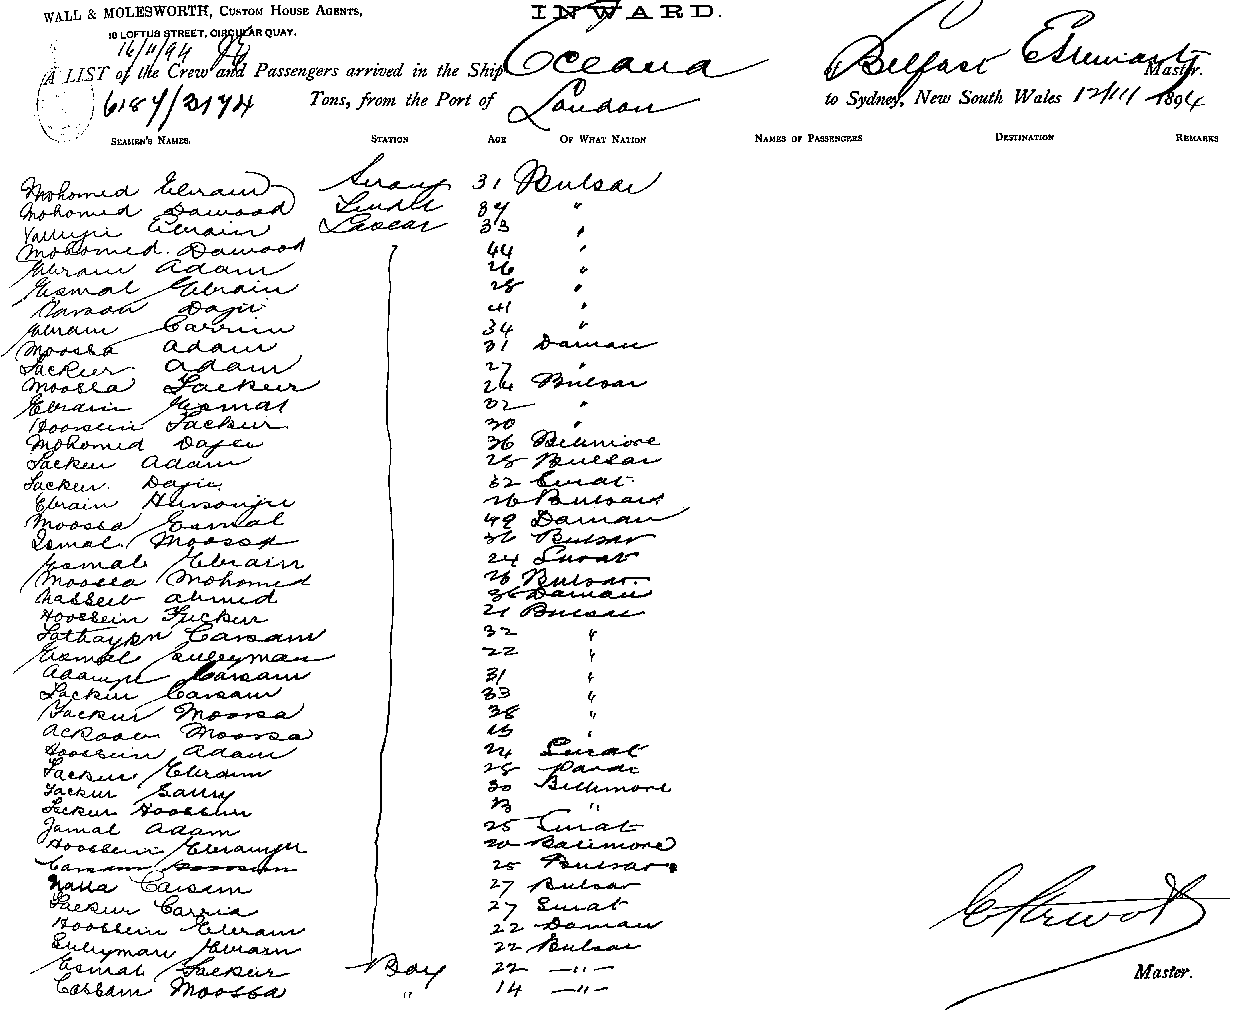 WALL & MOLESWORTH, CUSTOM HOUSE AGENTS,
INWARD.
10 LOFTUS STREET, CIRCULAR QUAY.
16/11/94
A LIST of the Crew and Passengers arrived in the Ship Oceana of Belfast E Stewart Master.
6187/3174 Tons, from the Port of London to Sydney, New South Wales 12/11 1894
SEAMEN'S NAMES. STATION AGE OF WHAT NATION NAMES OF PASSENGERS DESTINATION REMARKS
Mohomed Ebraim Serang 31 Bulsar
Mohomed Dawood Tindel 37 "
Ebraim Lascar 33 "
Mohomed Dawood 44 "
Ebraim Adam 26 "
Esmal Ebraim 28 "
Dajie 41 "
Ebraim Carrim 34 "
Moossa Adam 31 Daman
Sackur Adam 27 "
Moossa Sackur 24 Bulsar
Ebraim Esmal 32 "
Hoossein Sackur 30 "
Mohomed Dajee 36 Bilimore
Sackur Adam 28 Bulsar
Sackur Dajie 32 Surat
Ebraim 26 Bulsar
Moossa Esmal 49 Daman
Esmal Moossa 36 Bulsar
Esmal Ebraim 24 Surat
Moossa Mohomed 26 Bulsar
Nasseeb Ahmed 36 Daman
Hoossein Sackur 21 Bulsar
Cassam 32 "
Esmal Suleyman 22 "
Adamji Cassam 31 "
Sackur Cassam 33 "
Sackur Moossa 38 "
Moossa "
Hoossein Adam 24 Surat
Sackur Ebraim 28 Pardi
Sackur 30 Billimore
Sackur Hoossein "
Jamal Adam 25 Surat
Hoossein Ebramji 20 Balimore
25 Bulsar
Nalla Cassim 27 Bulsar
Sackur Carria 27 Surat
Hoossein Ebraim 22 Daman
Suleyman Ebraim 22 Bulsar
Esmal Sackur Boy 22 —"—
Cassam Moossa " 14 —"—
E Stewart
Master.